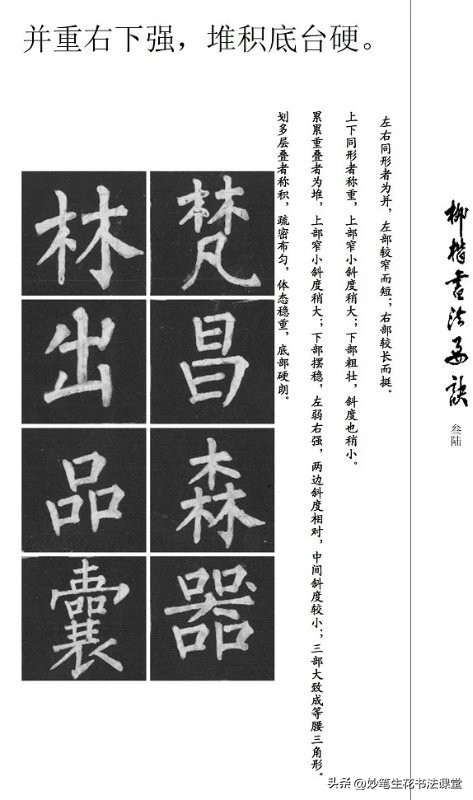 并重右下强，堆积底台硬。
柳楷书法要诀
叁陆
左右同形者为并，左部较窄而短；右部较长而挺。
上下同形者称重，上部窄小斜度稍大；下部粗壮，斜度也稍小。
累累重叠者为堆，上部窄小斜度稍大；下部摆稳，左弱右强，两边斜度相对，中间斜度较小；三部大致成等腰三角形。
划多层叠者称积，疏密布匀，体态稳重，底部硬朗。
梵 林
昌 出
森 品
器 囊
头条 @妙笔生花书法课堂